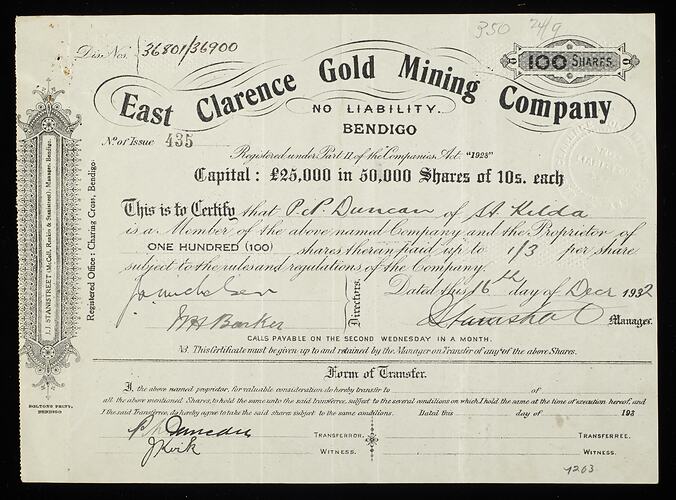 350 24/9
Dis. Nos. 36801/36900
100 SHARES.
East Clarence Gold Mining Company
NO LIABILITY.
BENDIGO
No. of Issue 435
Registered under Part II of the Companies Act "1928"
Capital: £25,000 in 50,000 Shares of 10s. each
This is to Certify that P. N. Duncan of St. Kilda
is a Member of the above named Company and the Proprietor of
ONE HUNDRED (100) shares therein paid up to 1/3 per share
subject to the rules and regulations of the Company.
Dated this 16th day of Decr 1932
W H Barker
Directors.
Manager.
CALLS PAYABLE ON THE SECOND WEDNESDAY IN A MONTH.
NB. This Certificate must be given up to and retained by the Manager on Transfer of any of the above Shares.
Registered Office: Charing Cross, Bendigo.
J.J. STANISTREET (McColl, Rankin & Stanistreet), Manager, Bendigo.
BOLTONS PRINT,
BENDIGO
Form of Transfer.
I, the above named proprietor, for valuable consideration do hereby transfer to of
all the above mentioned Shares, to hold the same unto the said transferee, subject to the several conditions on which I hold the same at the time of execution hereof, and
I the said Transferee, do hereby agree to take the said shares subject to the same conditions. Dated this day of 193
P. N. Duncan TRANSFEROR. TRANSFEREE.
J Kirk WITNESS. WITNESS.
1203